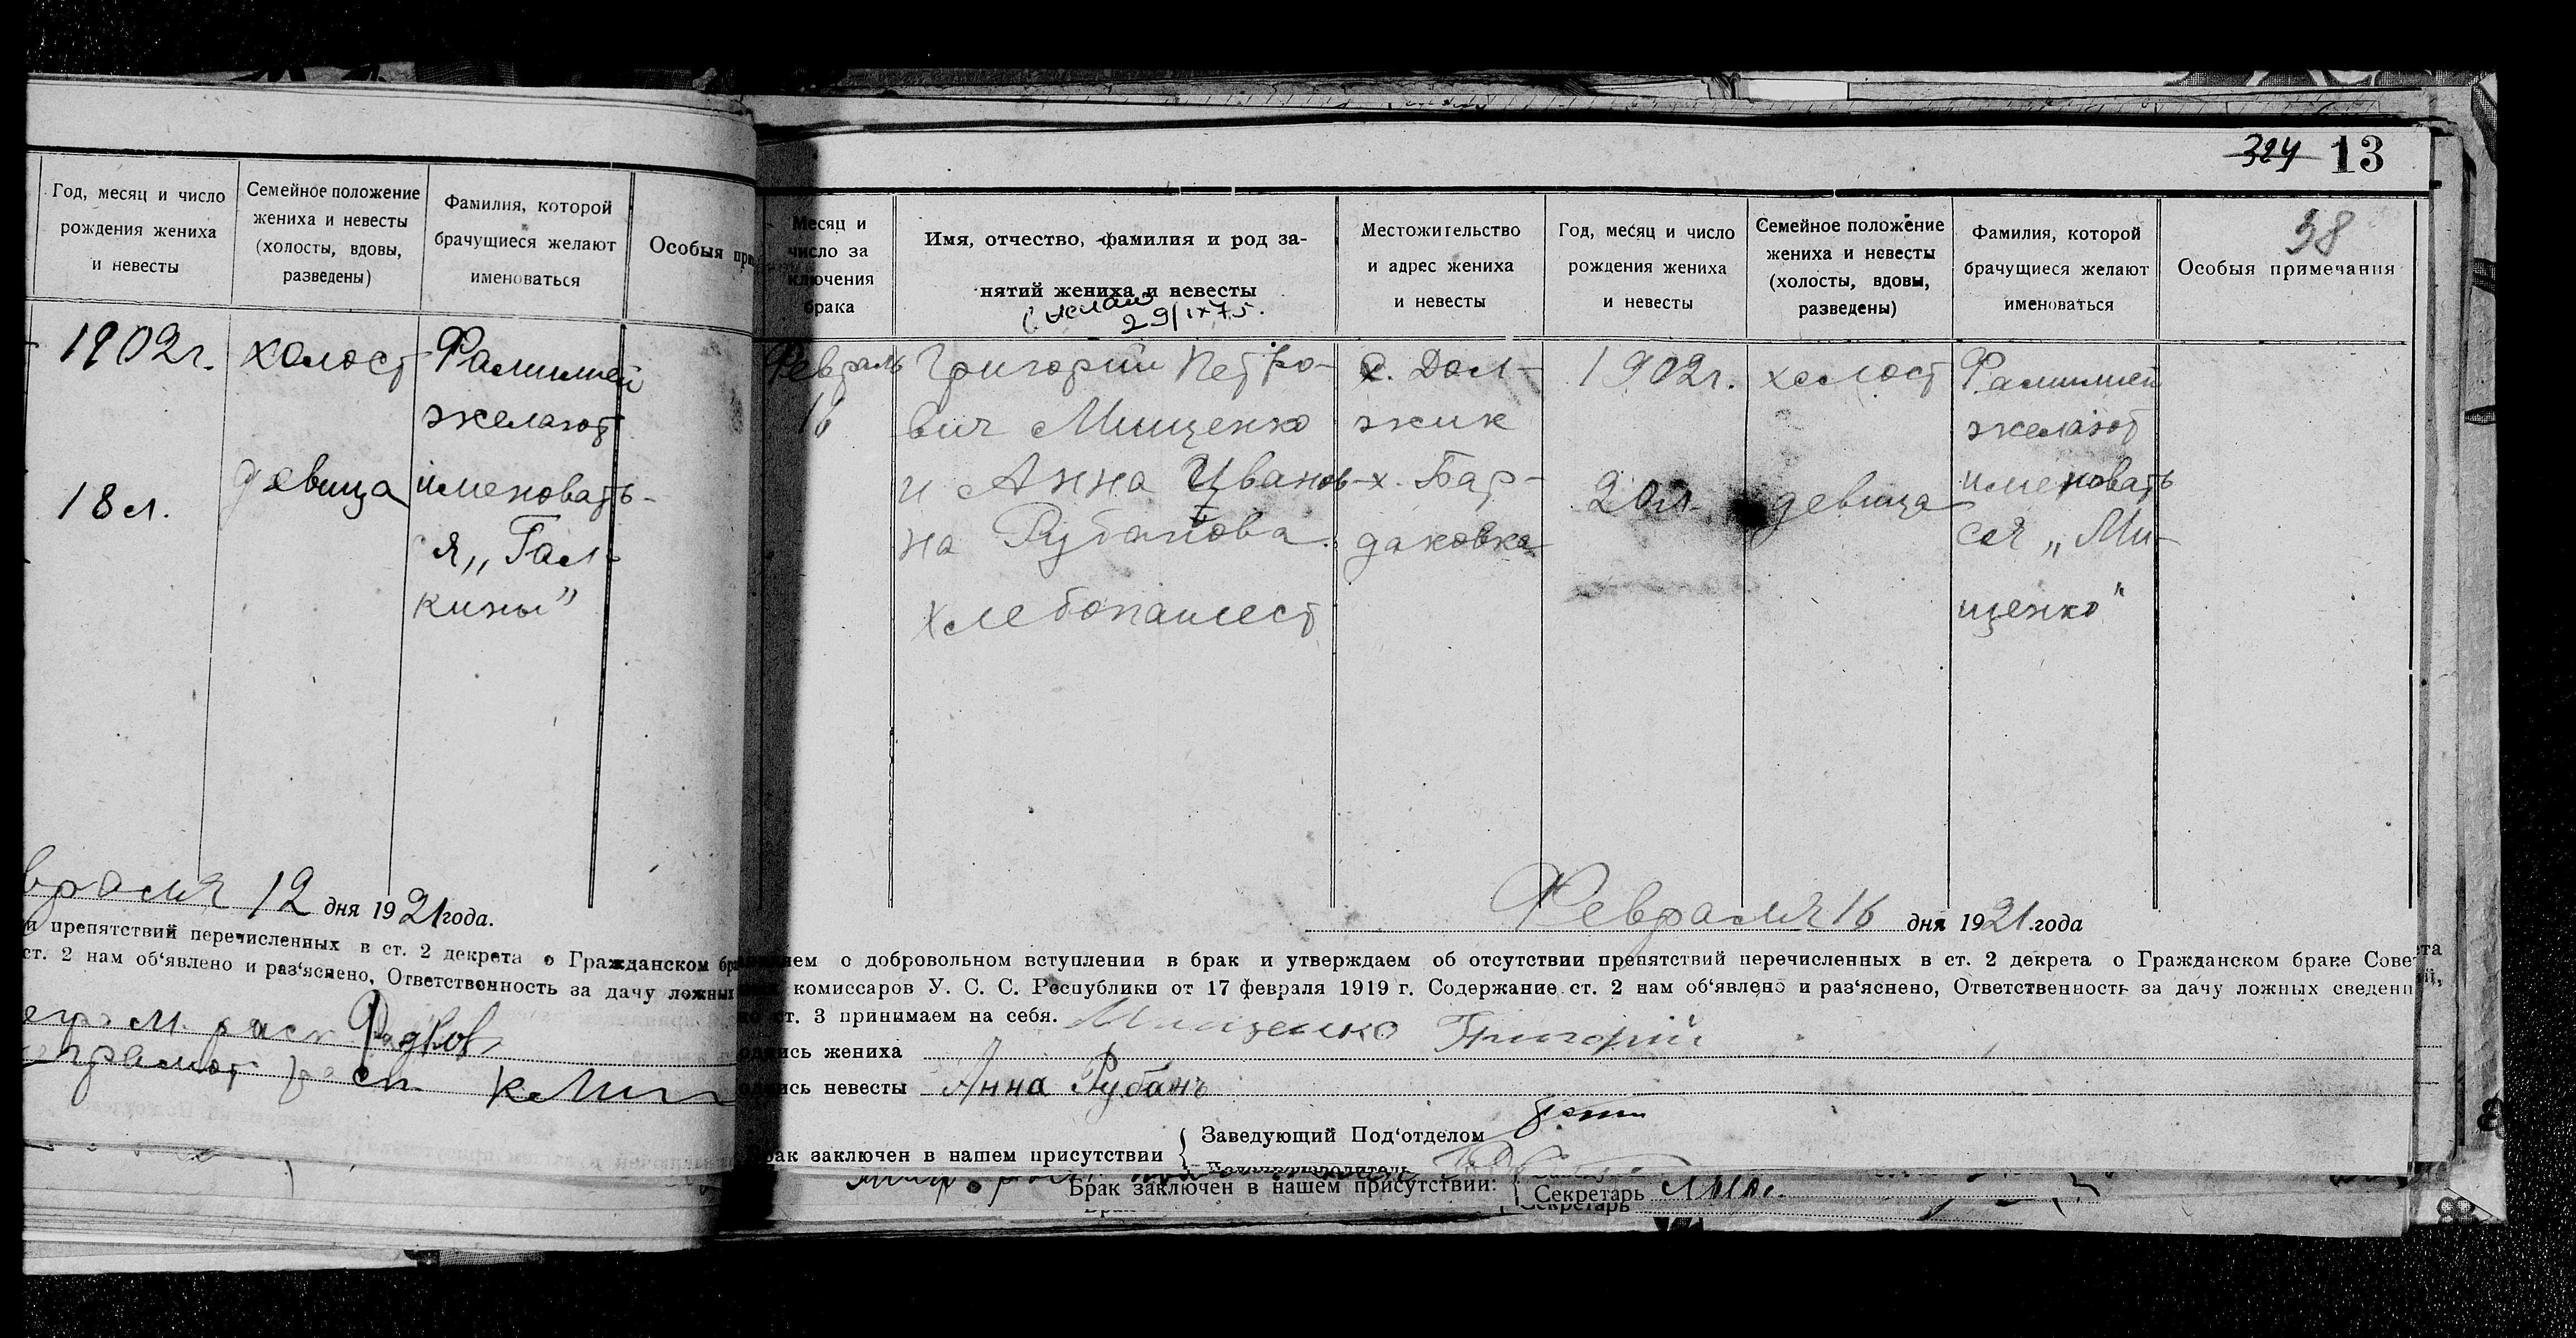 Год, месяц и число
рождения жениха
и невесты
Семейное положение
жениха и невесты
(холосты, вдовы,
разведены)
Фамилия, которой
брачущиеся желают
именоваться
Особыя
1902г.
18 л.
холост
девица
Фамилией
желают
именовать-
я „Гал-
кины”
12 дня 1921 года.
препятствий перечисленных в ст. 2 декрета о Гражданском
ст. 2 нам об‘явлено и раз‘яснено, Ответственность за дачу
324 13
38
Месяц и
число за
ключения
брака
Имя, отчество, фамилия и род за-
нятий жениха и невесты
29/IX 75.
Местожительство
и адрес жениха
и невесты
Год, месяц и число
рождения жениха
и невесты
Семейное положение
жениха и невесты
(холосты, вдовы,
разведены)
Фамилия, которой
брачущиеся желают
именоваться
Особыя примечания
Февраль
16
Григорий Петро-
вич Мищенко
и Анна Иванов-
на Рубанова
хлебопашест
х. Дол-
жик
х. Бар-
даковка
1902г.
20л.
холост
девица
Фамилией
желают
именовать
ся „Ми-
щенко”
Февраля 16 дня 1921.года
о добровольном вступлении в брак и утверждаем об отсутствии препятствий перечисленных в ст. 2 декрета о Гражданском браке Сове
комиссаров У. С. С. Республики от 17 февраля 1919 г. Содержание ст. 2 нам об‘явлено и раз‘яснено, Ответственность за дачу ложных сведени
ст. 3 принимаем на себя.
жениха Мищенко Григорий
невесты Анна Рубанъ
Брак заключен в нашем присутствии { Заведующий Под‘отделом
Брак заключен в нашем присутствии: { Секретарь
Секретарь